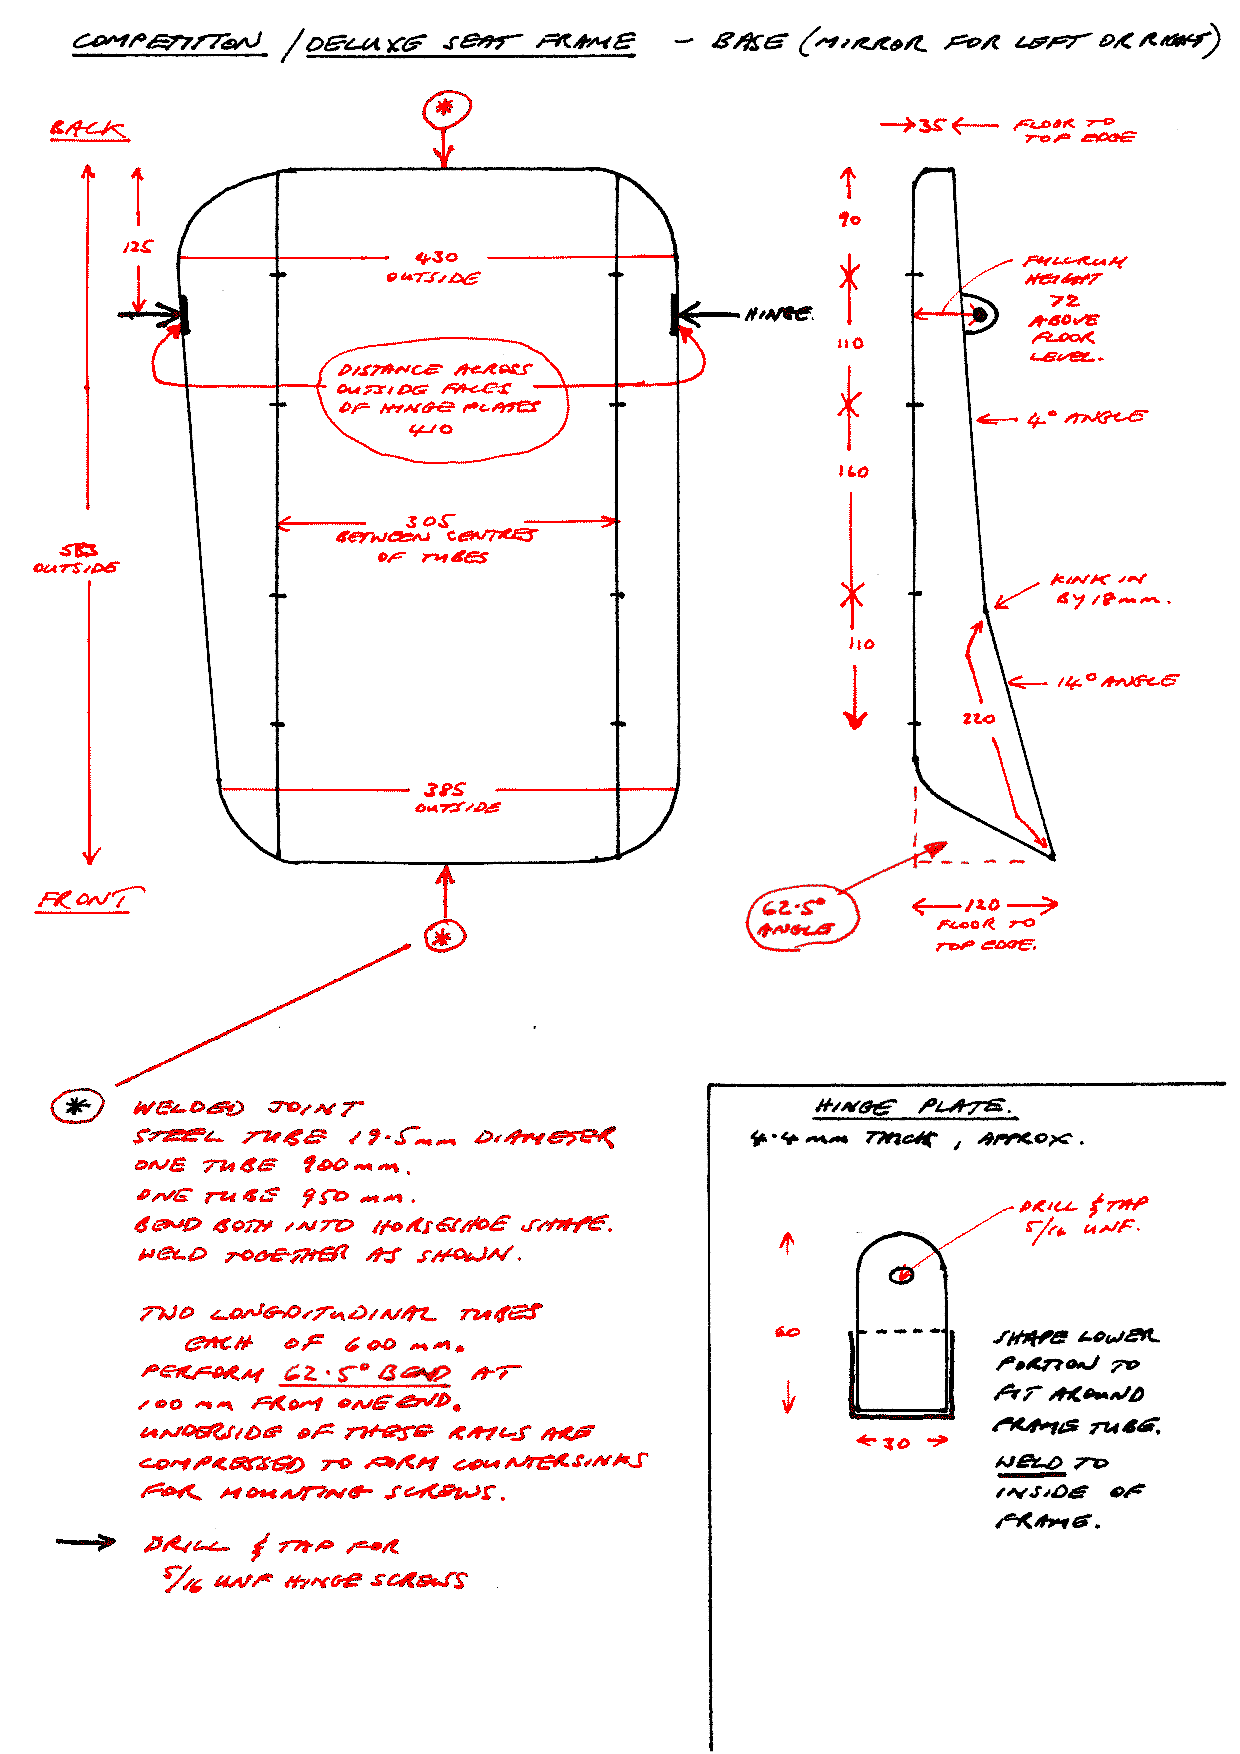 COMPETITION / DELUXE SEAT FRAME - BASE (MIRROR FOR LEFT OR RIGHT)
BACK
*
→35← FLOOR TO
TOP EDGE
125
90
430
OUTSIDE
FULCRUM
HEIGHT
72
ABOVE
FLOOR
LEVEL.
HINGE.
110
DISTANCE ACROSS
OUTSIDE FACES
OF HINGE PLATES
410
4° ANGLE
160
305
BETWEEN CENTRES
OF TUBES
OUTSIDE
KINK IN
BY 18mm.
110
14° ANGLE
220
385
OUTSIDE
FRONT
*
62.5°
ANGLE
120
FLOOR TO
TOP EDGE.
* WELDED JOINT
STEEL TUBE 19.5mm DIAMETER
ONE TUBE 900mm.
ONE TUBE 950mm.
BEND BOTH INTO HORSESHOE SHAPE.
WELD TOGETHER AS SHOWN.
TWO LONGDITUDINAL TUBES
EACH OF 600mm.
PERFORM 62.5° BEND AT
100mm FROM ONE END.
UNDERSIDE OF THESE RAILS ARE
COMPRESSED TO FORM COUNTERSINKS
FOR MOUNTING SCREWS.
→ DRILL & TAP FOR
5/16 UNF HINGE SCREWS
HINGE PLATE.
4.4mm THICK, APPROX.
DRILL & TAP
5/16 UNF.
60
30
SHAPE LOWER
PORTION TO
FIT AROUND
FRAME TUBE.
WELD TO
INSIDE OF
FRAME.